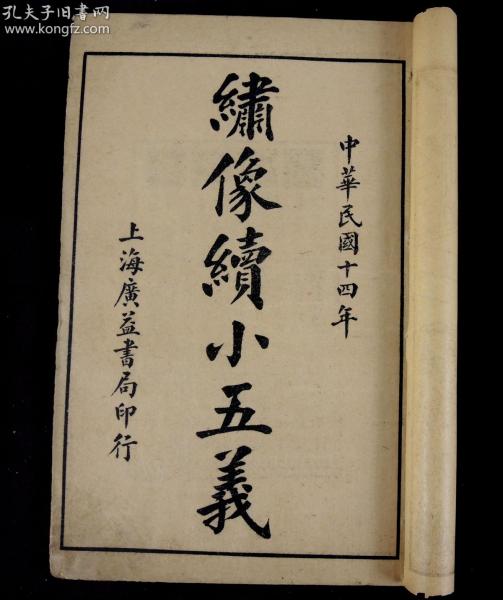 孔夫子旧书网
www.kongfz.com
中華民國十四年
繡像續小五義
上海廣益書局印行